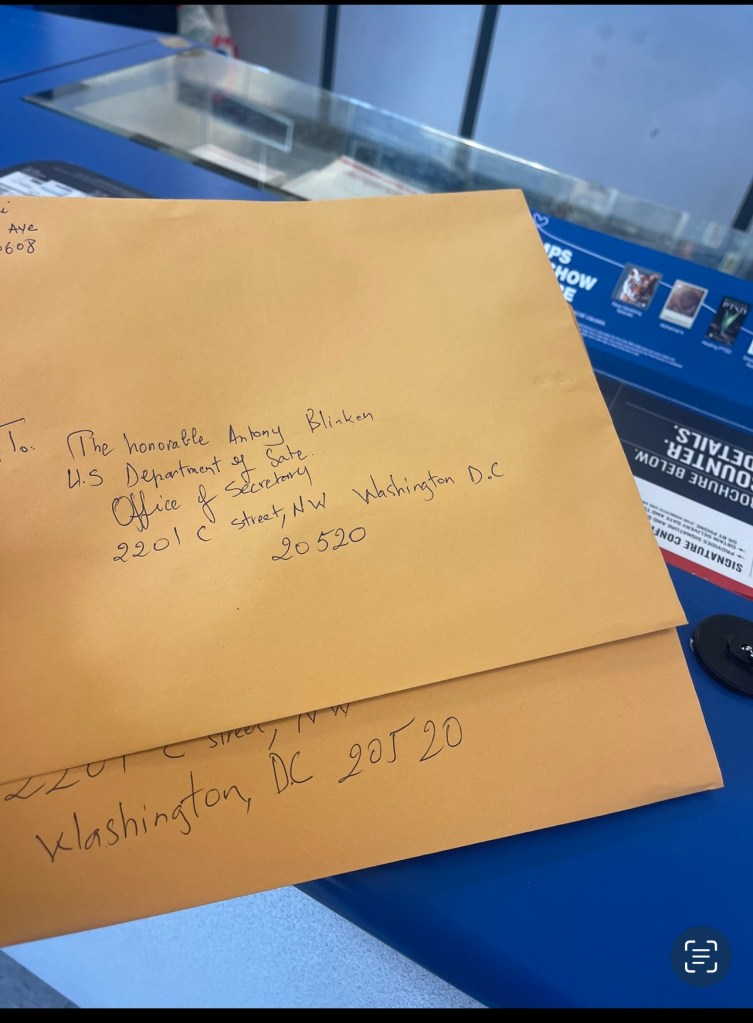 Ave
0608
To: The honorable Antony Blinken
U.S Department of Sate.
Office of Secretary
2201 C street, NW Washington D.C
20520
2201 C street, NW
Washington, DC 20520
MPS
SHOW
RE
COUNTER.
DETAILS.
OCHURE BELOW.
SIGNATURE CONF